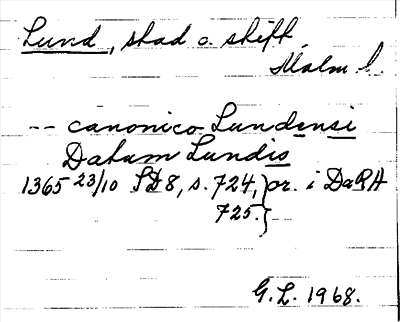 Lund, stad o. stift,
Malm l.
-- canonico Lundensi
Datum Lundis
1365 23/10 SD 8, s. 724, } or. i DaRA
725. }
G. L. 1968.